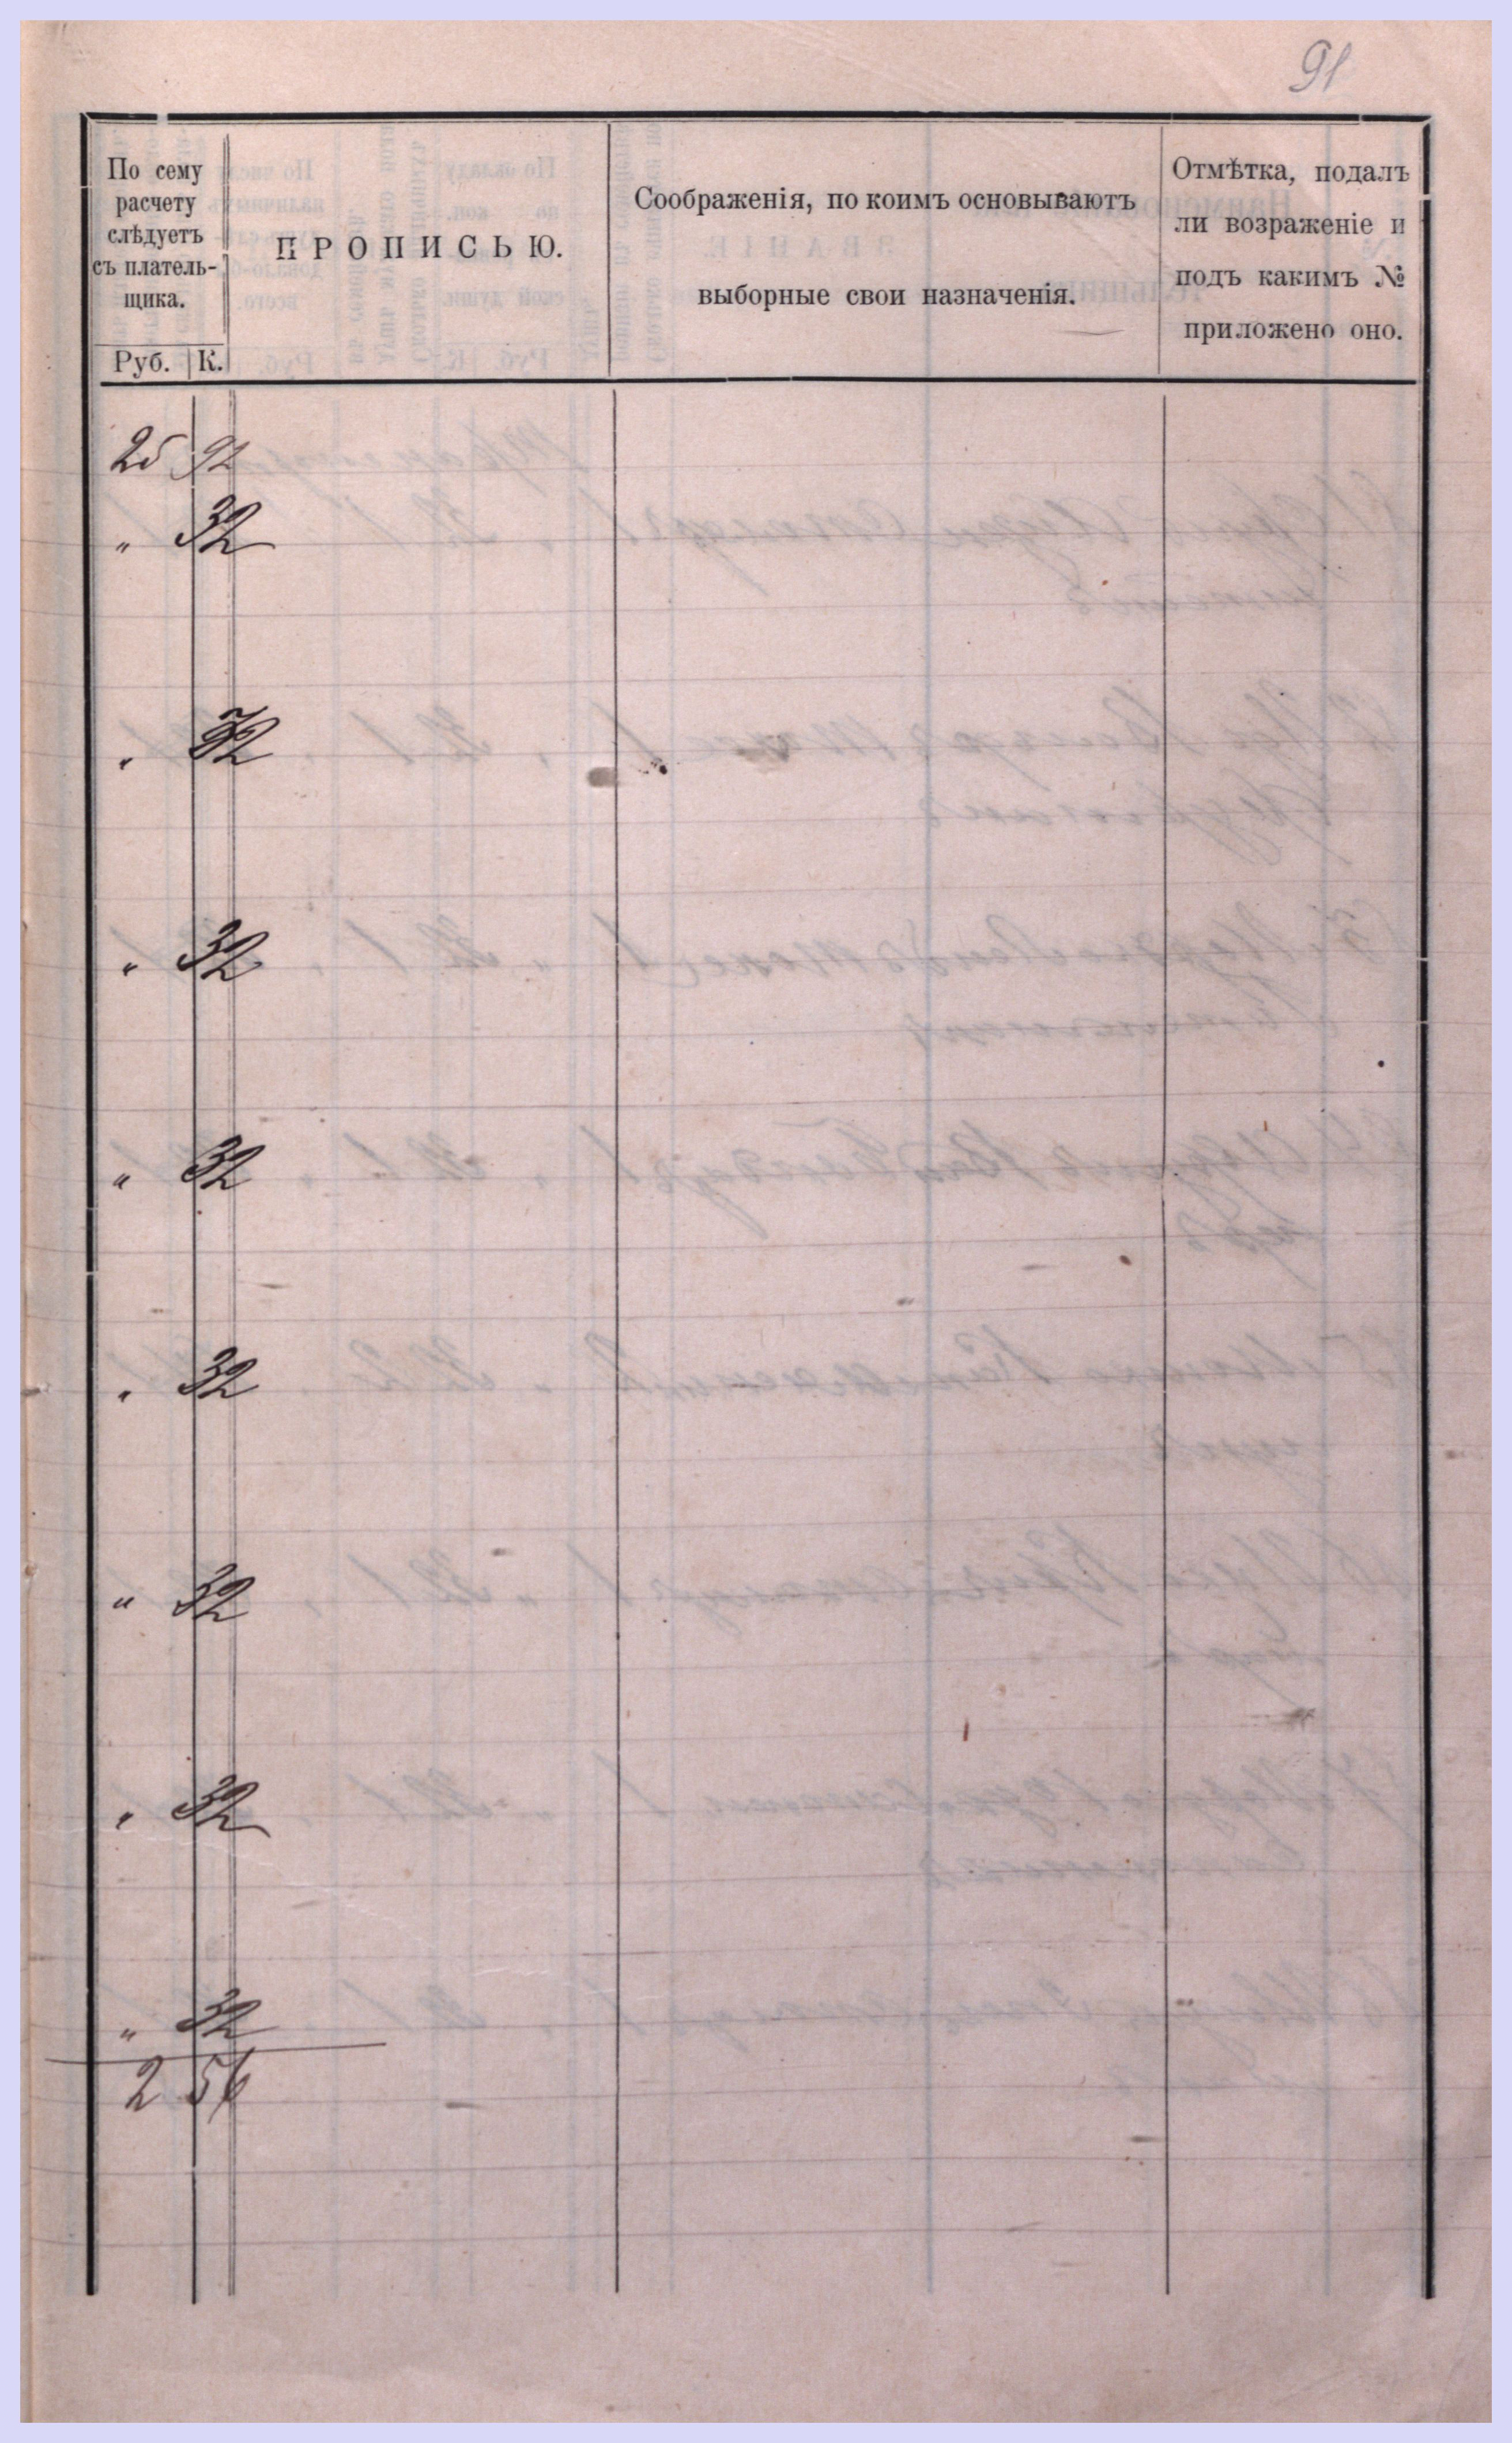 91
По сему
расчету
слѣдуетъ
съ платель-
щика.
Руб. К.
ПРОПИСЬЮ.
Соображенія, по коимъ основываютъ
выборные свои назначенія.
Отмѣтка, подалъ
ли возраженіе и
подъ какимъ №
приложено оно.
25 92
„ 32
„ 32
„ 32
„ 32
„ 32
„ 32
„ 32
„ 32
2 56